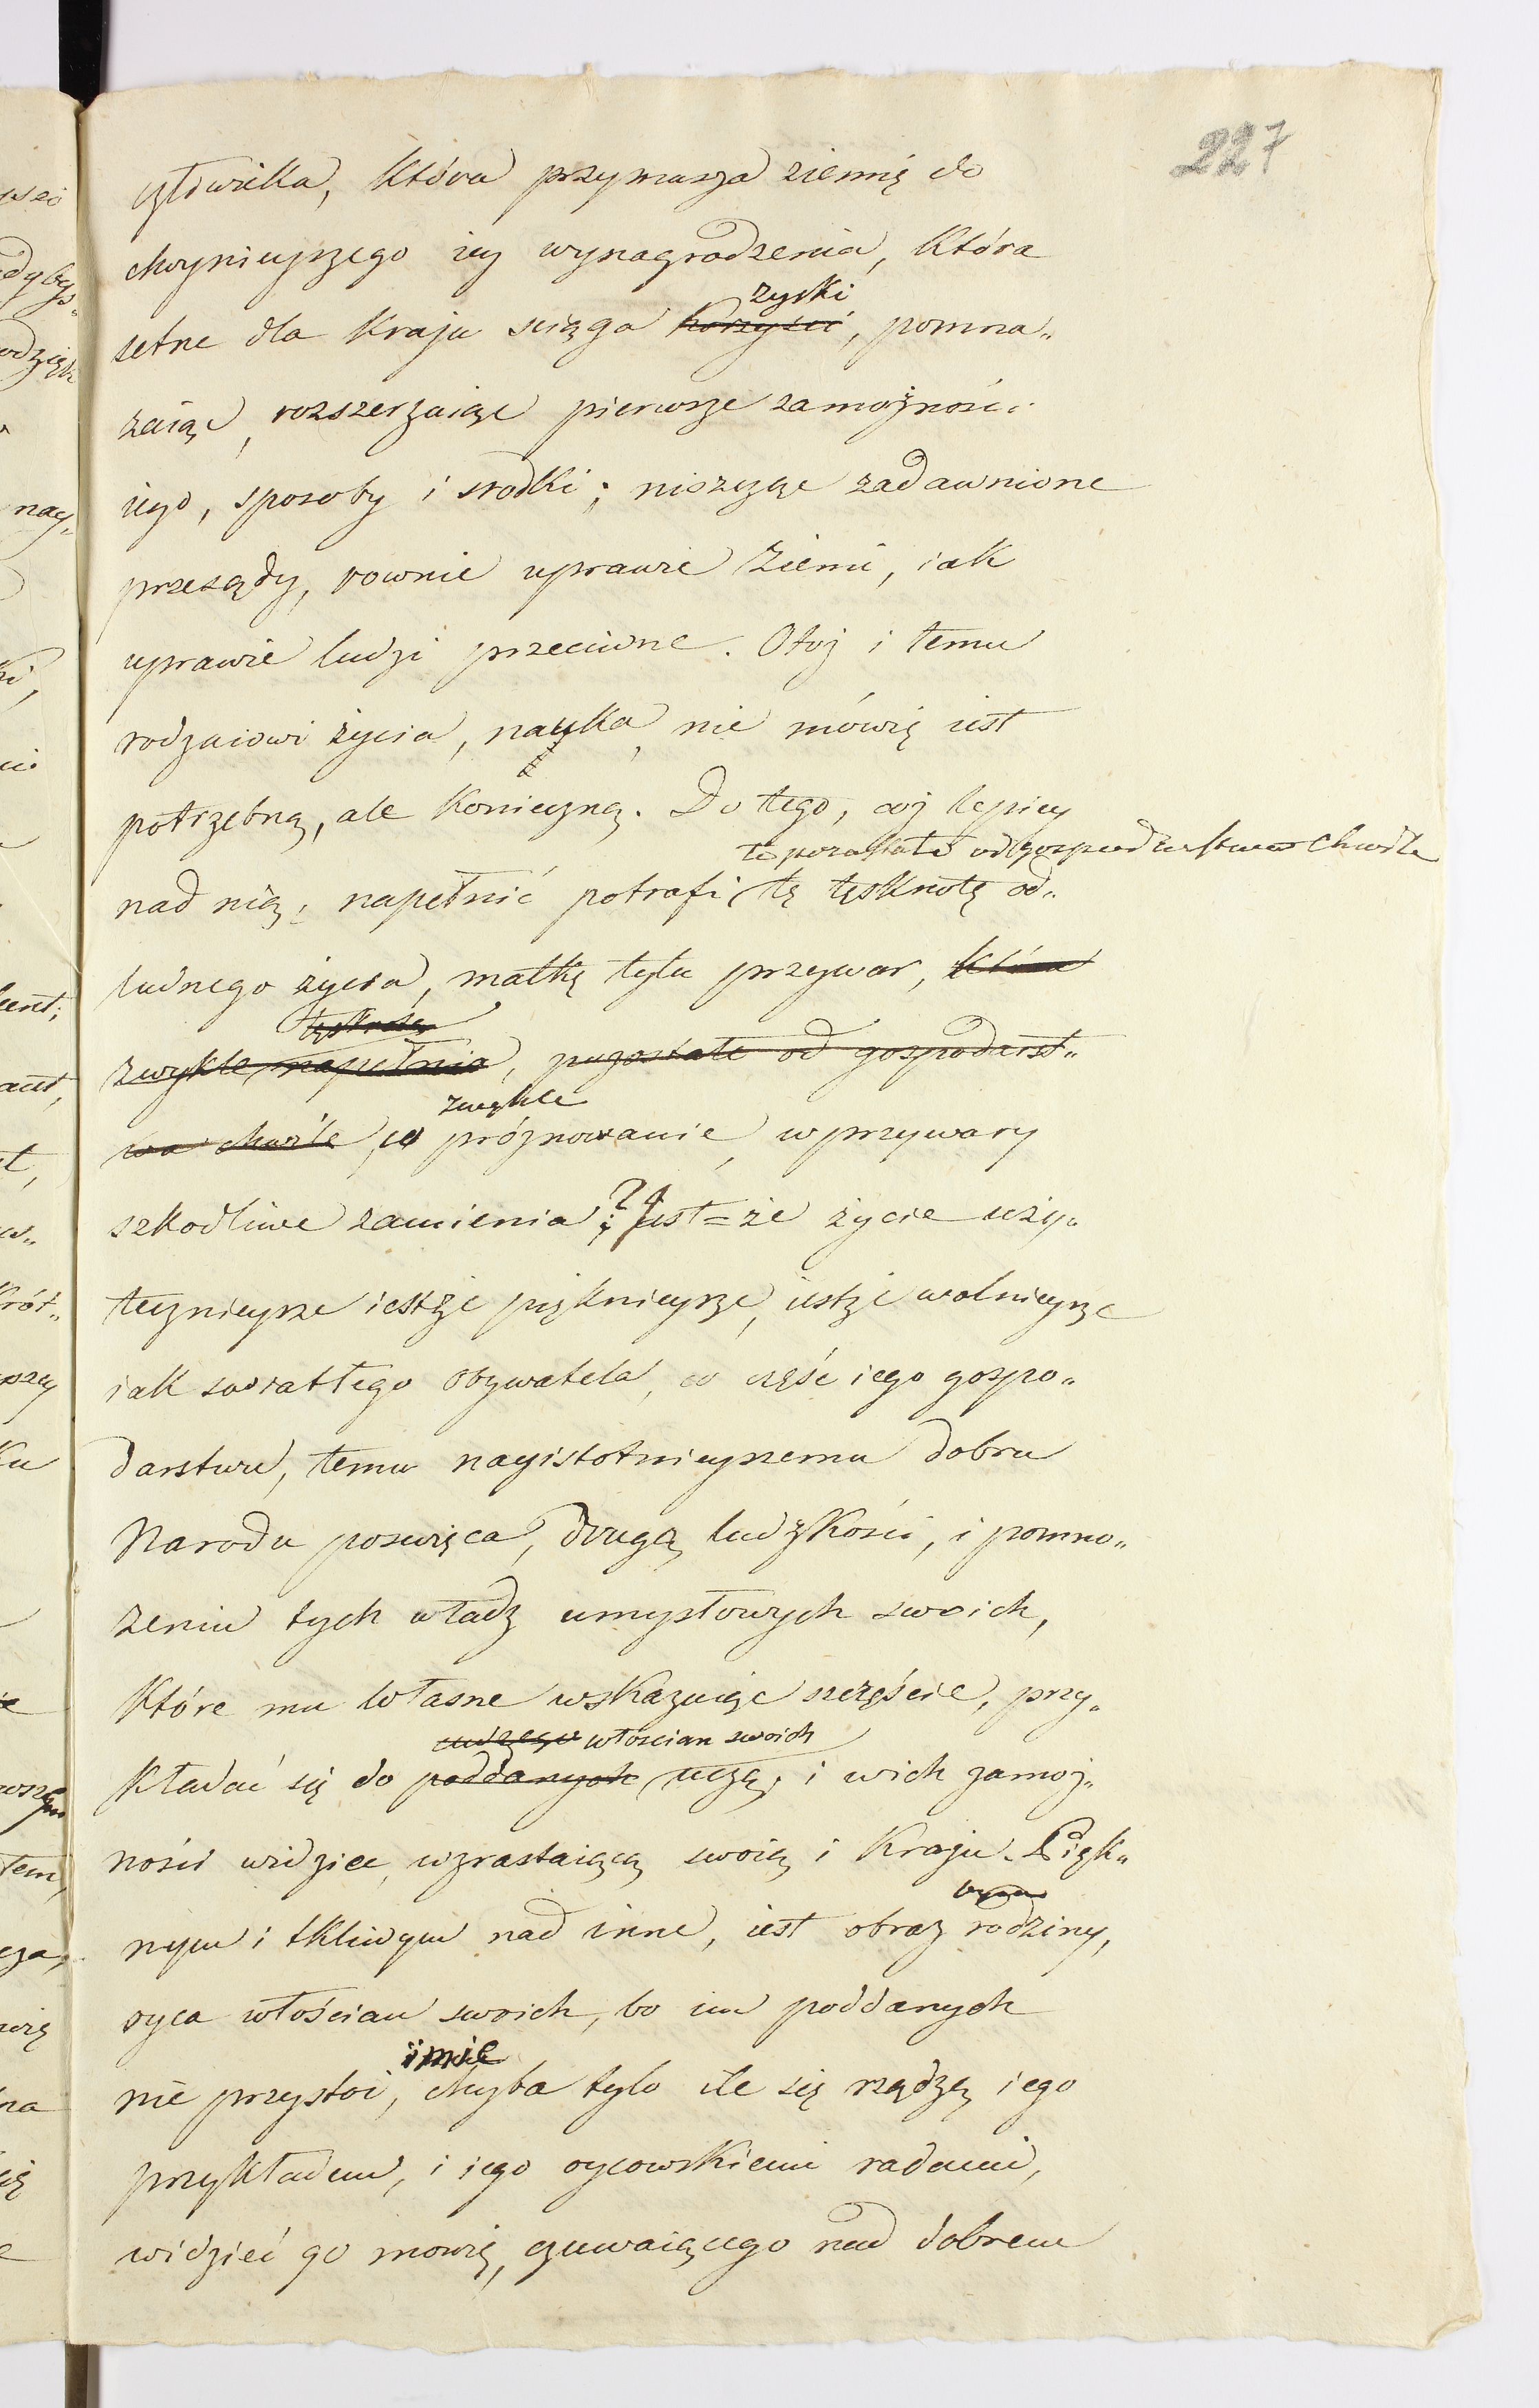 227
człowieka, która przymusza ziemię do
choynieyszego iey wynagrodzenia, która
zyski
setne dla Kraju sciąga korzyści, pomna„
zaiąc, rozszerzaiąc pierwsze zamożności
iego, sposoby i srodki; niszcząc zadawnione
przesądy, rownie uprawie Ziemi, iak
uprawie ludzi przeciwne. Otoż i temu
rodzaiowi życia, nauka, nie mówię iest
potrzebną, ale Konieczną. Do tego, coż lepiey
te pozostałe od gospodarstwa chwile
nad nią, napełnić potrafi tę tęsknotę od„
ludnego życia, matkę tylu przywar, która
tęsknotę
zwykle napełnia, pozostałe od gospodarst„
zwykle
wa chwile, co próżnowanie, w przywary
szkodliwe zamienia? Jest=że życie uży„
tecznieysze iestże pięknieysze, iestże wolnieysze
iak swiatłego Obywatela, co część iego gospo„
darstwu, temu nayistotnieyszemu dobru
Narodu poswięca, drugą ludzkości, i pomno„
zeniu tych władz umysłowych swoich,
Które mu własne wskazuiąc szczęście, przy„
cudzego włoscian swoich
Kładać się do poddanych uczą, i w ich zamoż„
ności widziec wzrastaiącą swoią i Kraju. Pięk„
nym i tkliwym nad inne, iest obraz rodziny,
oyca włościan swoich, bo im poddanych
imie
nie przystoi, chyba tylo ile się rządzą iego
przykładem, i iego oycowskiemi radami,
widzieć go mowię, czuwaiącego nad dobrem